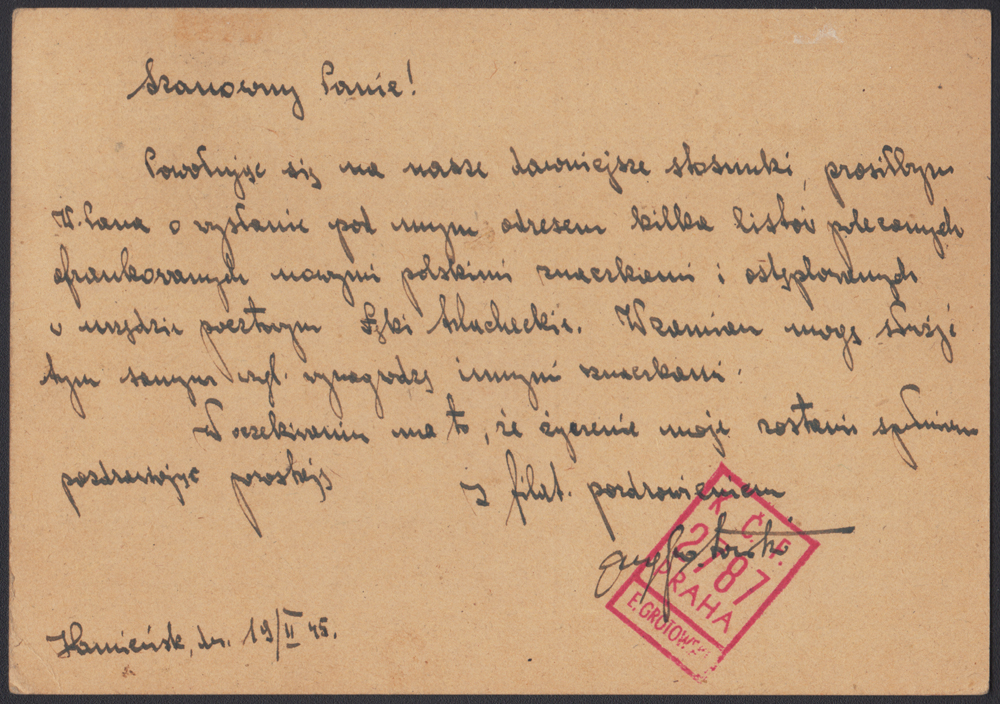 Szanowny Panie!
Powołując się na nasze dawniejsze stosunki, prosiłbym
W. Pana o wysłanie pod mym adresem kilka listów poleconych
ofrankowanych nowymi polskimi znaczkami i ostęplowanych
w urzędzie pocztowym Łęki Szlacheckie. Wzamian mogę służyć
tym samym wzgl. wynagrodzę innymi znaczkami.
W oczekiwaniu na to, że życzenie moje zostanie spełnione
pozdrawiając pozostaję
z filat. pozdrowieniem
K. Č. F.
2787
PRAHA
E. GROTOWSKI
Kamieńsk, dn. 19/II 45.